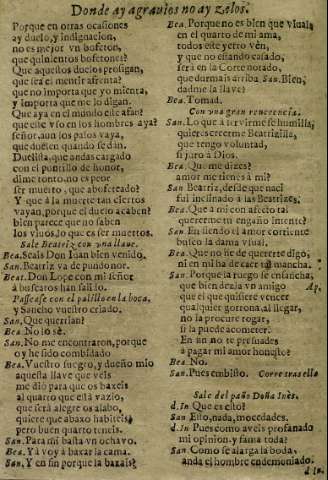 Donde ay agrauios no ay zelos.
Porque en otras ocasiones
ay duelo, y indignacion,
no es mejor vn bofeton,
que quinientos bofetones?
Que aquestos duelos prosigan,
que sea el mentir afrenta?
que no importa que yo mienta,
y importa que me lo digan.
Que aya en el mundo este afan?
que este vso en los hombres aya?
señor, aun los palos vaya,
que duelen quando se dàn.
Duelista, que andas cargado
con el puntillo de honor,
dime tonto, no es peor
ser muerto, que abofeteado?
Y que à la muerte tan ciertos
vayan, porque el duelo acaben?
bien parece que no saben
los viuos, lo que es ser muertos.
Sale Beatriz con vna llaue.
Bea. Seais Don Iuan bien venido.
San. Beatriz va de pundonor.
Beat. Don Lope con mi señor
à buscaros han salido.
Passease con el palillo en la boca,
y Sancho vuestro criado.
San, Que querrian?
Bea. No lo sè.
San. No me encontraron, porque
oy he sido combidado
Bea. Vuestro suegro, y dueño mio
aquesta llaue que veis
me diò para que os baxeis
al quarto que està vazio,
que serà alegre os alabo,
quiere que abaxo habiteis,
pero buen quarto teneis.
San. Para mi basta vn ochavo.
Bea. Ya voy à baxar la cama.
San. Y en fin porque la baxais?
Bea. Porque no es bien que viuais
en el quarto de mi ama,
todos este yerro vèn,
y que no estando casado,
serà en la Corte notado,
que durmais arriba San. Bien,
dadme la llaue?
Bea. Tomad.
Con vna gran reuerencia.
San. Lo que à seruirme se humilla,
quieres creerme Beatricilla,
que tengo voluntad,
si juro à Dios.
Bea. Que me dizes?
amor me tienes à mi?
San Beatriz, desde que naci
fui inclinado à las Beatrizes.
Bea. Que à mi con afecto tal
quererme tu engaño intente?
San En siendo el amor corriente
busco la dama vsual.
Bea. Que no he de quererte digo,
ni en mi ha de caer tal mancha.
San. Porque la ruego se ensancha,
que bien dezia vn amigo Ap,
que el que quisiere vencer
qualquier gorrona, al llegar,
no la procure rogar,
si la puede acometer.
En fin no te persuades
à pagar mi amor honesto?
Bea. No.
San. Pues embisto. Corre tras ella
Sale del paño Doña Inès.
d.In Que es esto?
San Esto, nada, mocedades.
d.In Pues como aveis profanado
mi opinion, y fama toda?
San. Como se alarga la boda,
anda el hombre endemoniado.
d In.